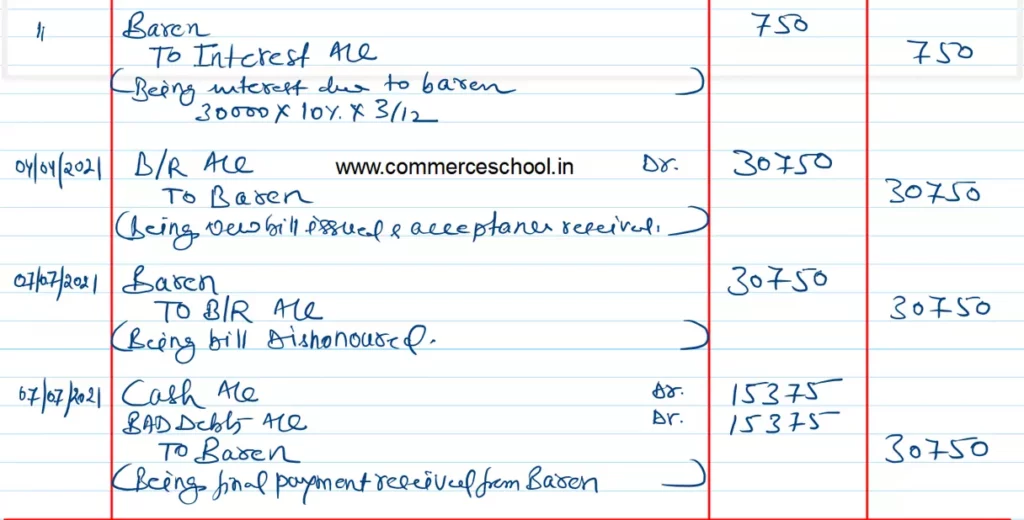 " Baren 750
To Interest A/c 750
(Being interest due to baren)
30000 X 10%. X 3/12
04/04/2021 B/R A/c www.commerceschool.in Dr. 30750
To Baren 30750
(Being new bill issued & acceptance received.)
07/07/2021 Baren 30750
To B/R A/c 30750
(Being bill Dishonoured.)
07/07/2021 Cash A/c Dr. 15375
BAD Debts A/c Dr. 15375
To Baren 30750
(Being final payment received from Baren)